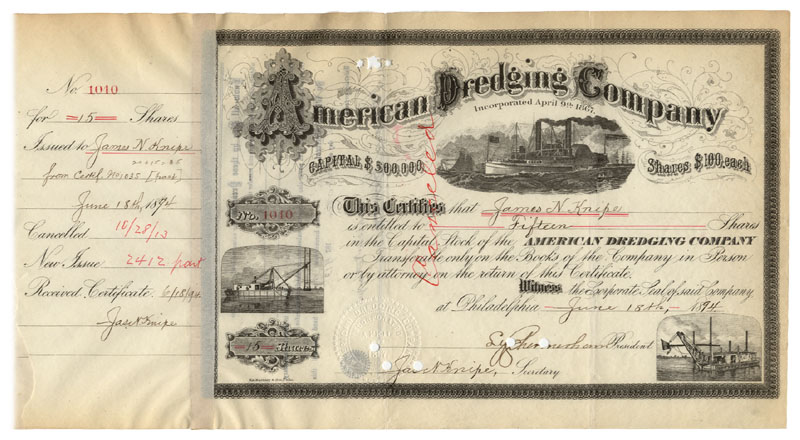 No. 1010
for =15= Shares
Issued to James N Knipe
from Certif. No 1035 [part]
June 18th, 1894
Cancelled 10/28/13
New Issue 2412 part
Received Certificate 6/18/94
Jas N Knipe
American Dredging Company
Incorporated April 9th 1867
CAPITAL $300,000
Shares $100, each
Cancelled
No. 1010
This Certifies that James N Knipe
is entitled to Fifteen Shares
in the Capital Stock of the AMERICAN DREDGING COMPANY
Transferable only on the Books of the Company in Person
or by attorney on the return of this Certificate.
Witness the Corporate Seal of said Company
at Philadelphia June 18th, 1894
=15= Shares
President
Jas N Knipe, Secretary